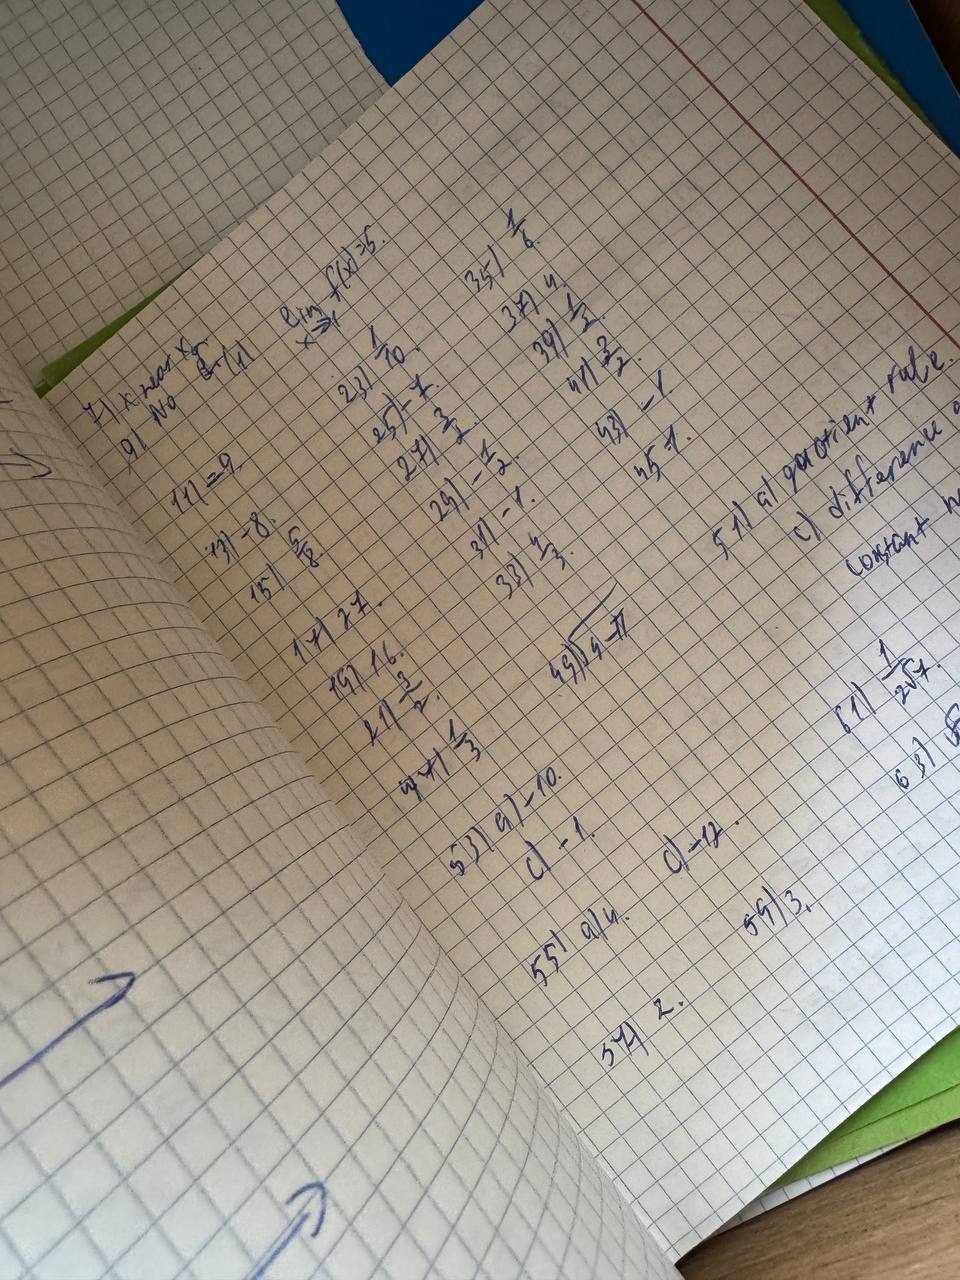 7)
9) No
lim f(x)=5.
x→1
11) = 9
13) -8.
15) 5/8.
17) 27.
19) 16.
21) 3/2.
23) 1/10.
25) -7.
27) 3/2.
29) -1/2.
31) -1.
33) 4/3.
35) 1/6.
37) 4.
39) 1/2.
41) 3/2.
43) -1
45 1.
47) 1/3
49) √4-π
51) a) quotient rule.
c) difference
constant
53) a) -10.
c) -1. d) -12.
55) a) 4.
57) 2.
59) 3.
61) 1/2√7.
63)